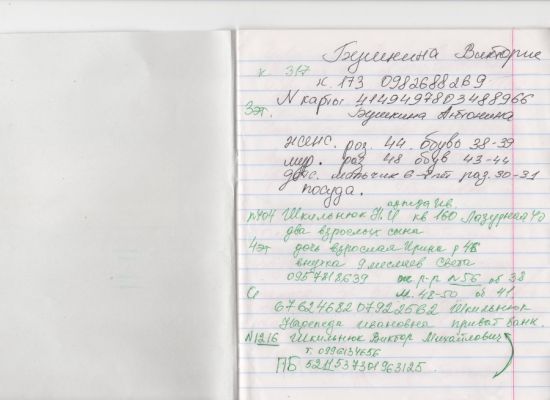 Бушкина Виктория
к. 317
к. 173 0982688269
N карты 4149497803488966
3эт. Бушкина Антонина
женс. раз. 44. обувь 38-39
муж. раз 48 обув 43-44
мальчик 6 лет раз. 30-31
посуда.
Шкильнюк Н. И кв 160 Лазурная 40
два взрослых сына
4эт дочь взрослая Ирина р 46
внучка 9 месяцев Света
0957818639 р-р N56 об 38
м. 48-50 об 41
6762468207922562 Шкильнюк
Надежда Ивановна приват банк.
N1216 Шкильнюк Виктор Михайлович
т. 0996134656
ПБ 5211537301963125.